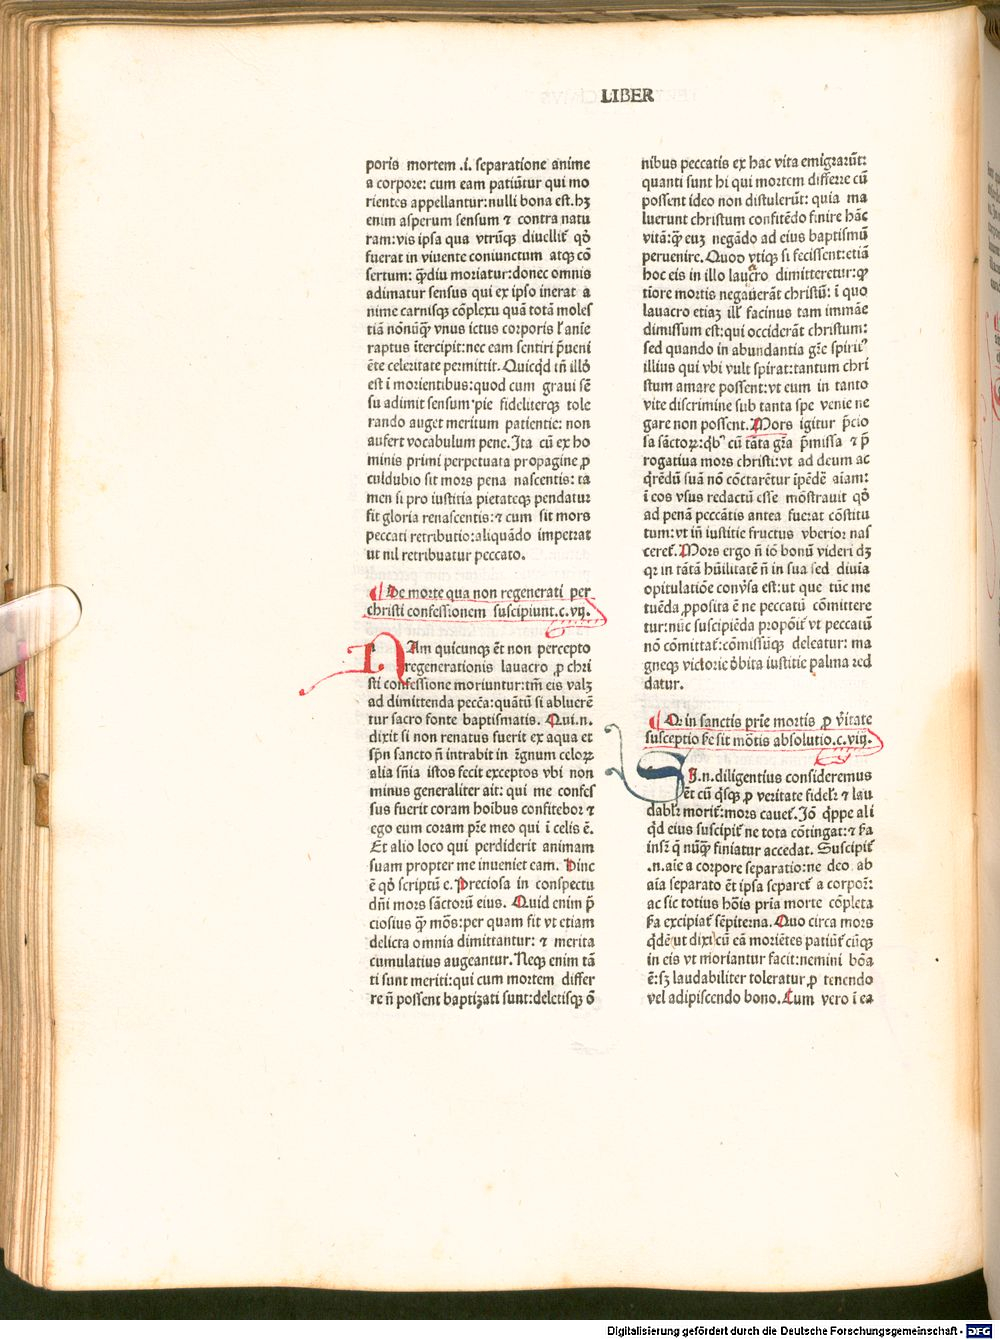 LIBER
poris mortem .i. separatione anime
a corpore: cum eam patiūtur qui mo
rientes appellantur: nulli bona est. hꝫ
enim asperum sensum ⁊ contra natu
ram: vis ipsa qua vtrūqꝫ diuellit᷑ qđ
fuerat in viuente coniunctum atqꝫ cō
sertum: q̄ꝫdiu moriatur: donec omnis
adimatur sensus qui ex ipso inerat a
nime carnisqꝫ cōplexu quā totā moles
tiā nōnūq̄ꝫ vnus ictus corporis ł an̄ie
raptus ītercipit: nec eam sentiri p̄ueni
ēte celeritate permittit. Quicq̇d tn̄ illđ
est ī morientibus: quod cum graui sē
su adimit sensum pie fideliterqꝫ tole
rando auget meritum patientie: non
aufert vocabulum pene. Ita cū ex ho
minis primi perpetuata propagine ꝓ
culdubio sit mors pena nascentis: ta
men si pro iustitia pietateqꝫ pendatur
fit gloria renascentis: ⁊ cum sit mors
peccati retributio: aliquādo impetrat
ut nil retribuatur peccato.
De morte qua non regenerati per
christi confessionem suscipiunt. c. vij.
NAm quicunqꝫ ēt non percepto
regenerationis lauacro ꝓ chri
sti confessione moriuntur: tm̄ eis valꝫ
ad dimittenda pecc̄a: quātū si abluerē
tur sacro fonte baptismatis. Qui .n.
dixit si non renatus fuerit ex aqua et
sp̄u sancto n̄ intrabit in r̄gnum celoꝝ
alia sn̄ia istos fecit exceptos vbi non
minus generaliter ait: qui me confes
sus fuerit coram hoībus confitebor ⁊
ego eum coram pr̄e meo qui ī celis ē.
Et alio loco qui perdiderit animam
suam propter me inueniet eam. Hinc
ē qđ scriptū ē. Preciosa in conspectu
dn̄i mors sāctorū eius. Quid enim p̄
ciosius q̄ꝫ mōs: per quam fit vt etiam
delicta omnia dimittantur: ⁊ merita
cumulatius augeantur. Neqꝫ enim tā
ti sunt meriti: qui cum mortem differ
re n̄ possent baptizati sunt: deletisqꝫ ō
nibus peccatis ex hac vita emigrarūt:
quanti sunt hi qui mortem differre cū
possent ideo non distulerūt: quia ma
luerunt christum confitēdo finire hāc
vitā: q̄ꝫ euꝫ negādo ad eius baptismū
peruenire. Quod vtiqꝫ si fecissent: etiā
hoc eis in illo lauacro dimitteretur: qꝫ
tīore mortis negauerāt christū: ī quo
lauacro etiaꝫ ill̄ facinus tam immāe
dimissum est: qui occiderāt christum:
sed quando in abundantia gr̄e spirit᷑
illius qui vbi vult spirat: tantum chri
stum amare possent: vt eum in tanto
vite discrimine sub tanta spe venie ne
gare non possent. Mors igitur p̄cio
sa sāctoꝝ: qͥbꝰ cū tāta gr̄a p̄missa ⁊ p̄
rogatiua mors christi: vt ad deum ac
q̇rēdū suā nō cōctarētur īpēdē aīam:
ī eos vsus redactū esse mōstrauit qđ
ad penā peccātis antea fuerat cōstitu
tum: vt in̄ iustitie fructus vberior nas
ceret᷑. Mors ergo n̄ iō bonū videri dꝫ
qꝛ in tātā hūilitatē n̄ in sua sed diuīa
opitulatiōe conṽsa est: ut que tūc me
tuēda ꝓposita ē ne peccatū cōmittere
tur: nūc suscipiēda propōit᷑ vt peccatū
nō cōmittat᷑: cōmissūqꝫ deleatur: ma
gneqꝫ victorie d̄bita iustitie palma red
datur.
Qꝛ in sanctis prīe mortis ꝓ ṽitate
susceptio sc̄e sit mōtis absolutio. c. viij.
SI .n. diligentius consideremus
ēt cū q̇sqꝫ ꝓ veritate fidelr̄ ⁊ lau
dablr̄ morit᷑: mors cauet᷑. Iō q̇ppe ali
q̇d eius suscipit᷑ ne tota cōtingat: ⁊ sc̄a
insr̄ q̄ nūq̄ꝫ finiatur accedat. Suscipit᷑
.n. aīe a corpore separatio: ne deo ab
aīa separato ēt ipsa separet᷑ a corpoꝛ:
ac sic totius hōis prīa morte cōpleta
sc̄a excipiat᷑ sēpiterna. Quo circa mors
q̇dē ut dixi cū eā moriētes patiūt᷑ cūqꝫ
in eis vt moriantur facit: nemini bōa
ē: sꝫ laudabiliter toleratur ꝓ tenendo
vel adipiscendo bono. Cum vero ī ea
Digitalisierung gefördert durch die Deutsche Forschungsgemeinschaft - DFG